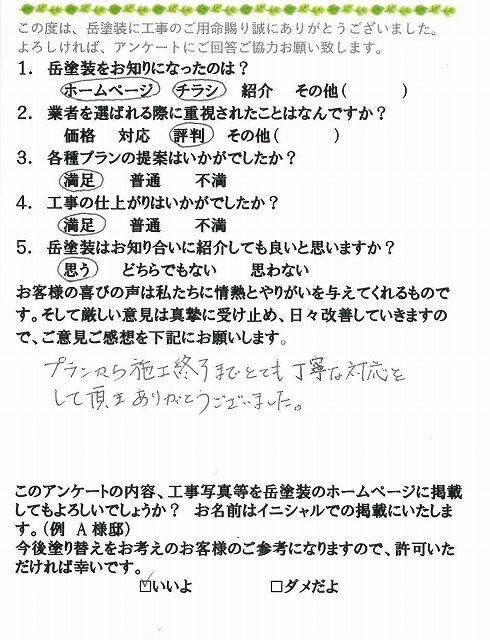 この度は、岳塗装に工事のご用命賜り誠にありがとうございました。
よろしければ、アンケートにご回答ご協力お願い致します。
1. 岳塗装をお知りになったのは？
ホームページ チラシ 紹介 その他（ ）
2. 業者を選ばれる際に重視されたことはなんですか？
価格 対応 評判 その他（ ）
3. 各種プランの提案はいかがでしたか？
満足 普通 不満
4. 工事の仕上がりはいかがでしたか？
満足 普通 不満
5. 岳塗装はお知り合いに紹介しても良いと思いますか？
思う どちらでもない 思わない
お客様の喜びの声は私たちに情熱とやりがいを与えてくれるもので
す。そして厳しい意見は真摯に受け止め、日々改善していきますの
で、ご意見ご感想を下記にお願いします。
プランから施工終了までとても丁寧な対応を
して頂きありがとうございました。
このアンケートの内容、工事写真等を岳塗装のホームページに掲載
してもよろしいでしょうか？ お名前はイニシャルでの掲載にいたしま
す。（例 A 様邸）
今後塗り替えをお考えのお客様のご参考になりますので、許可いた
だければ幸いです。
☑いいよ □ダメだよ